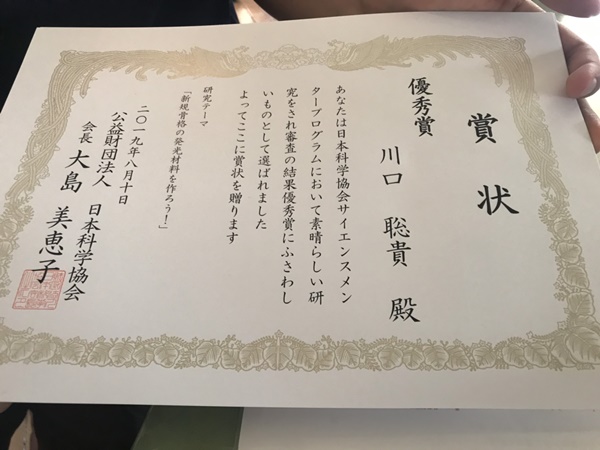 賞状
優秀賞
川口 聡貴 殿
あなたは日本科学協会サイエンスメン
タープログラムにおいて素晴らしい研
究をされ審査の結果優秀賞にふさわし
いものとして選ばれました
よってここに賞状を贈ります
研究テーマ
「新規骨格の発光材料を作ろう!」
二〇一九年八月十日
公益財団法人 日本科学協会
会長 大島 美恵子